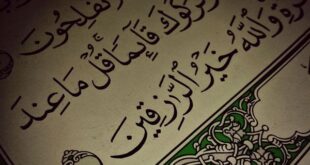 تُفْلِحُونَ
تَرَكُوكَ قَآئِمًا قُلْ مَا عِندَ
وَٱللَّهُ خَيْرُ ٱلرَّٰزِقِينَ